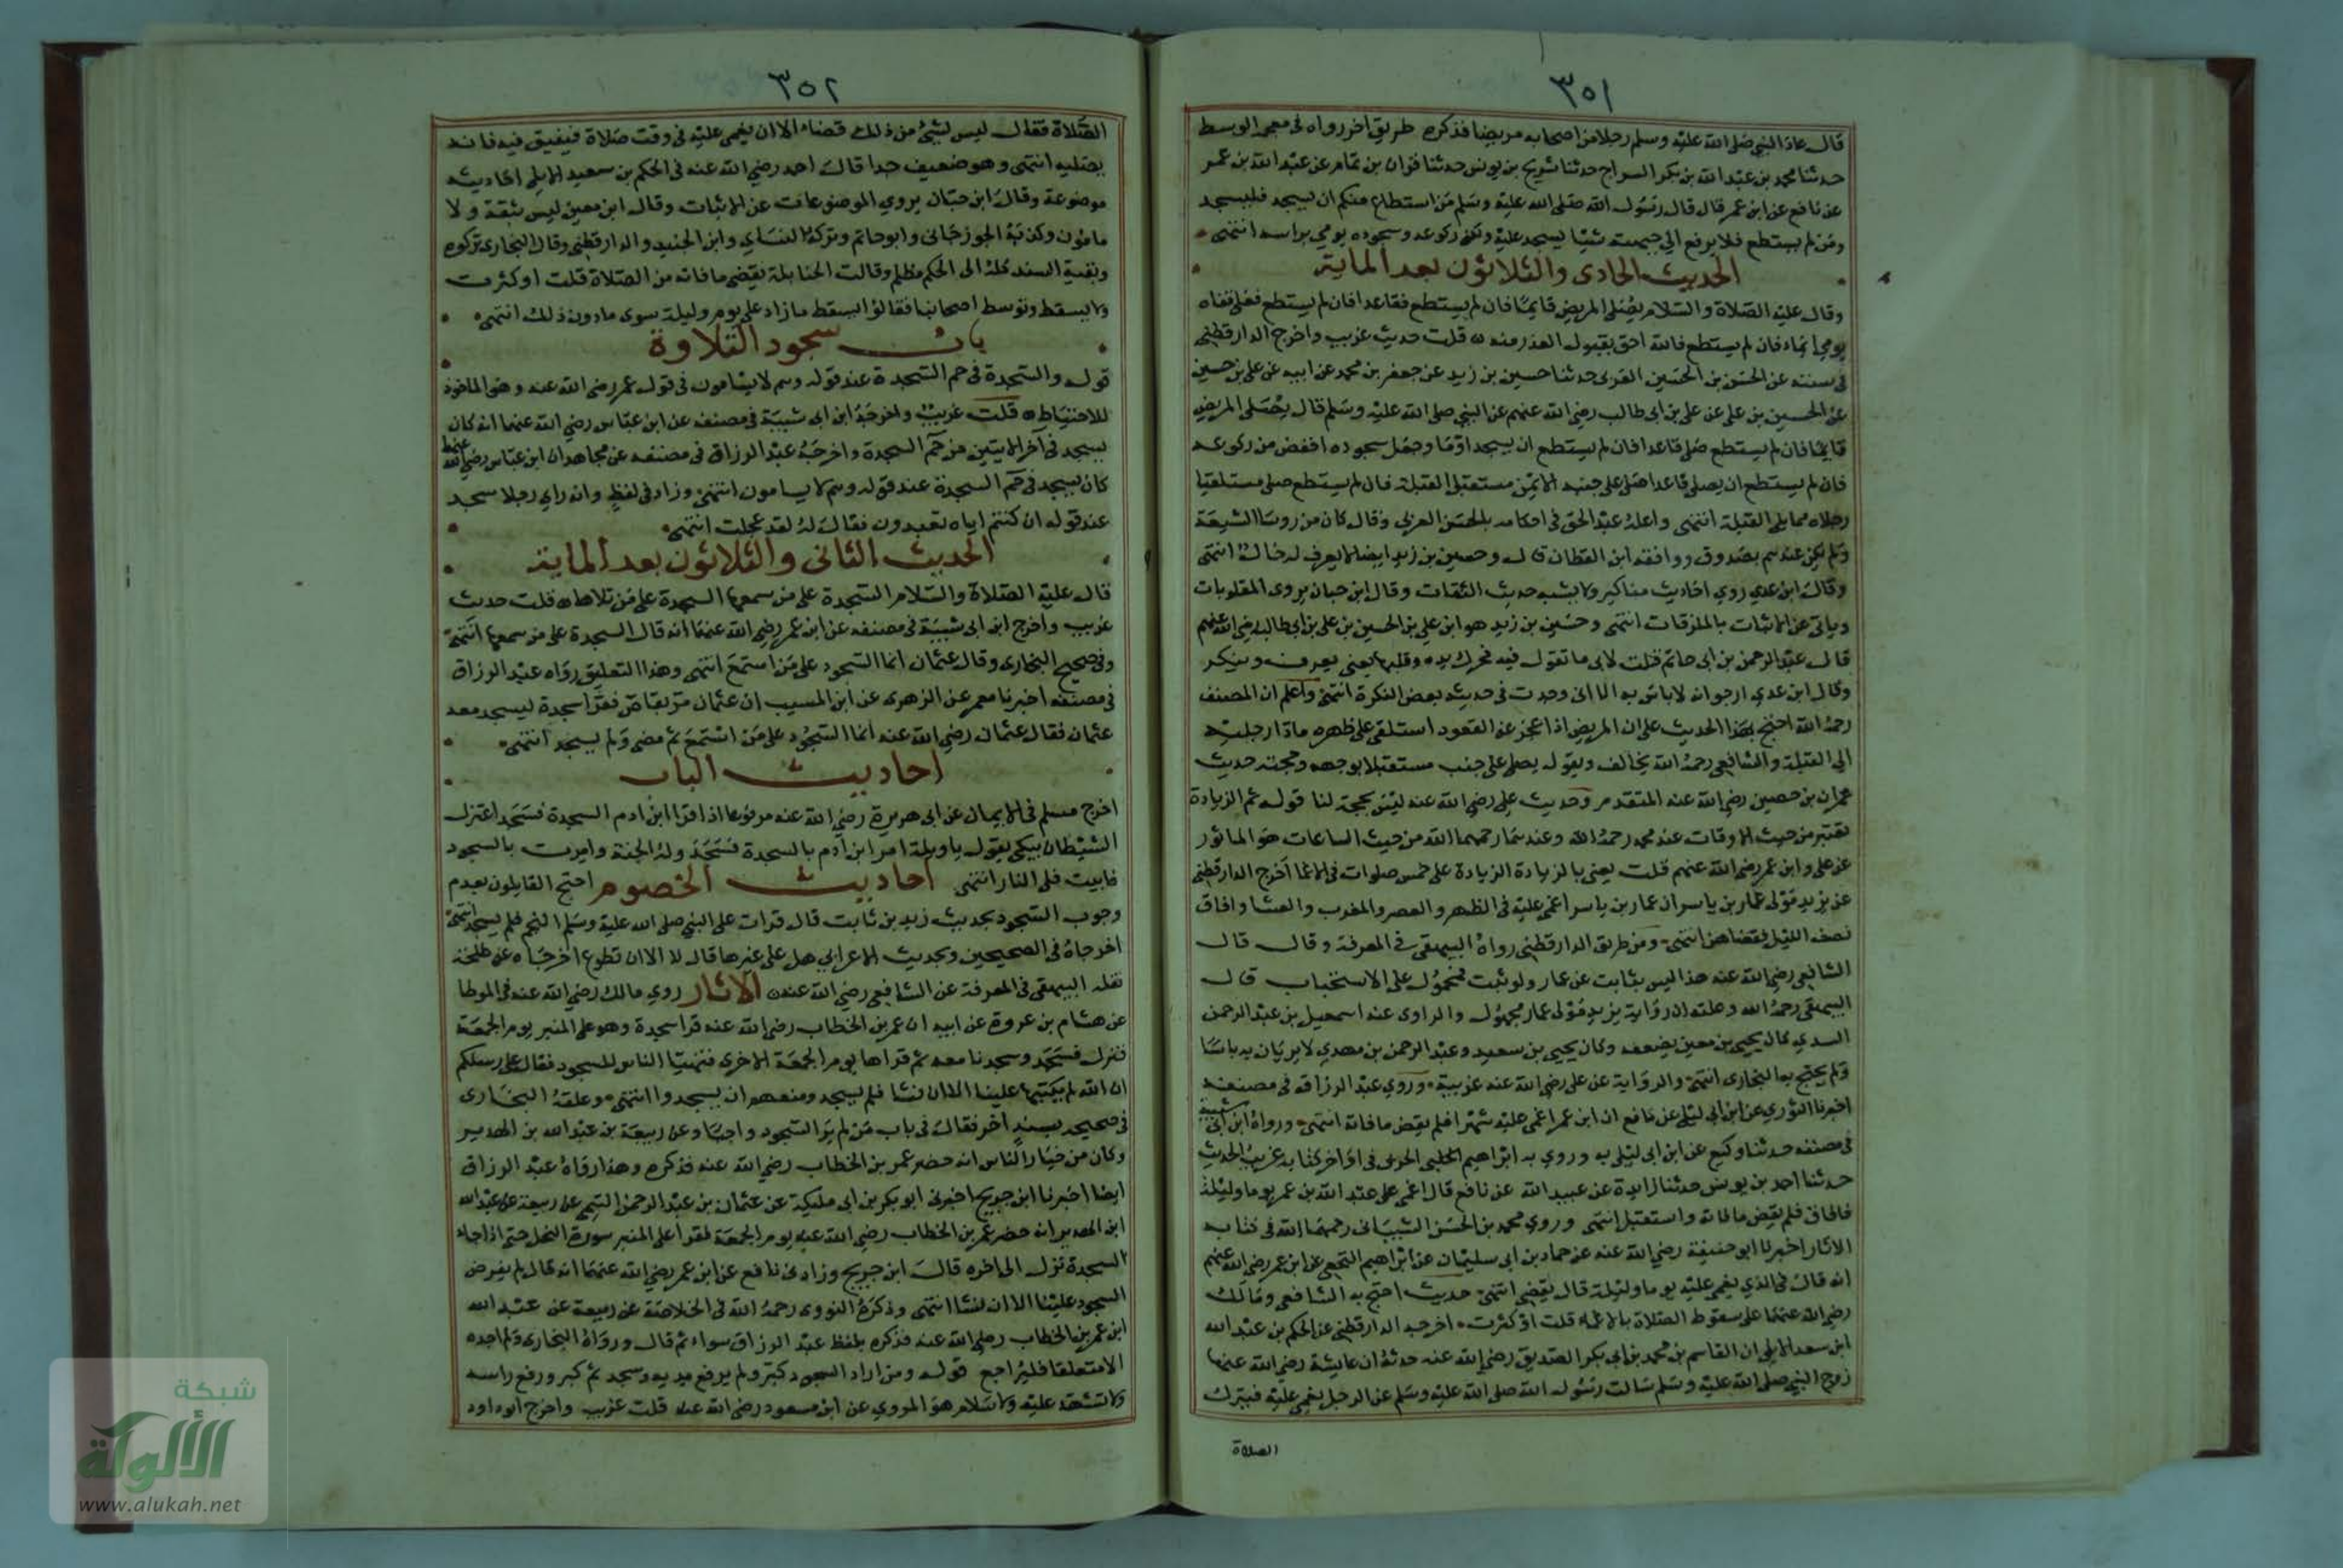 ٣٥١
قال عاد النبي صلى الله عليه وسلم رجلا من اصحابه مريضا فذكره طريق اخر رواه في معجمه الوسط
حدثنا محمد بن عبد الله بن بكر السراج حدثنا شريح بن يونس حدثنا قران بن تمام عن عبد الله بن عمر
عن نافع عن ابن عمر قال قال رسول الله صلى الله عليه وسلم من استطاع منكم ان يسجد فليسجد
ومن لم يستطع فلا يرفع الي جبهته شيئا يسجد عليه ولكن ركوعه وسجوده يومي براسه انتهى
الحديث الحادى والثلاثون بعد الماية
وقال عليه الصلاة والسلام يصلى المريض قايما فان لم يستطع فقاعدا فان لم يستطع فعلى قفاه
يومي ايماء فان لم يستطع فالله احق بقبول العذر منه قلت حديث غريب واخرج الدارقطني
في سننه عن الحسن بن الحسين العرنى حدثنا حسين بن زيد عن جعفر بن محمد عن ابيه عن علي بن حسين
عن الحسين بن علي عن علي بن ابى طالب رضي الله عنهم عن النبي صلى الله عليه وسلم قال يصلى المريض
قايما فان لم يستطع صلى قاعدا فان لم يستطع ان يسجد اوما وجعل سجوده اخفض من ركوعه
فان لم يستطع ان يصلى قاعدا صلى على جنبه الايمن مستقبل القبلة فان لم يستطع صلى مستلقيا
رجلاه مما يلي القبلة انتهى واعله عبد الحق في احكامه بالحسن العرني وقال كان من روسا الشيعة
ولم يكن عندهم بصدوق ووافقه ابن القطان قال وحسين بن زيد ايضا لا يعرف له حال انتهى
وقال ابن عدي روي احاديث مناكير ولا يشبه حديث الثقات وقال ابن حبان يروى المقلوبات
وياتى عن الاثبات بالملزقات انتهى وحسين بن زيد هو ابن علي بن الحسين بن علي بن ابي طالب رضي الله عنهم
قال عبد الرحمن بن ابى حاتم قلت لابى ما تقول فيه فحرك يده وقلبها يعني يعرف وينكر
وقال ابن عدي ارجو انه لا باس به الا انى وجدت في حديثه بعض النكرة انتهى واعلم ان المصنف
رحمه الله احتج بهذا الحديث على ان المريض اذا عجز عن القعود استلقى على ظهره مادا رجليه
الى القبلة والشافعي رحمه الله يخالف ويقول يصلى على جنب مستقبلا بوجهه وحجته حديث
عمران بن حصين رضي الله عنه المتقدم وحديث علي رضي الله عنه ليس بحجة لنا قوله ثم الزيادة
تعتبر من حيث الاوقات عند محمد رحمه الله وعندهما رحمهما الله من حيث الساعات هو الماثور
عن علي وابن عمر رضي الله عنهم قلت يعنى بالزيادة الزيادة على خمس صلوات في الاغما اخرج الدارقطني
عن يزيد مولى عمار بن ياسر ان عمار بن ياسر اغمي عليه في الظهر والعصر والمغرب والعشا وافاق
نصف الليل فقضاهن انتهى ومن طريق الدارقطني رواه البيهقى في المعرفة وقال قال
الشافعي رضي الله عنه هذا ليس بثابت عن عمار ولو ثبت فمحمول على الاستحباب قال
البيهقى رحمه الله وعلته ان رواية يزيد مولى عمار مجهول والراوى عنه اسمعيل بن عبد الرحمن
السدي كان يحيى بن معين يضعفه وكان يحيى بن سعيد وعبد الرحمن بن مهدي لا يريان به باسا
ولم يحتج به البخارى انتهى والرواية عن علي رضي الله عنه غريبة وروي عبد الرزاق في مصنفه
اخبرنا الثوري عن ابن ابي ليلى عن نافع ان ابن عمر اغمي عليه شهرا فلم يقض ما فاته انتهى ورواه ابن ابى شيبة
في مصنفه حدثنا وكيع عن ابن ابى ليلى به وروي به ابراهيم الحربى في اواخر كتابه غريب الحديث
حدثنا احمد بن يونس حدثنا زايدة عن عبيد الله عن نافع قال اغمي على عبد الله بن عمر يوما وليلة
فافاق فلم يقض ما فاته واستقبل انتهى وروي محمد بن الحسن الشيبانى رحمهما الله في كتابه
الاثار اخبرنا ابو حنيفة رضي الله عنه عن حماد بن ابى سليمان عن ابراهيم النخعي عن ابن عمر رضي الله عنهم
انه قال في الذي يغمى عليه يوما وليلة قال يقضي انتهى حديث احتج به الشافعي ومالك
رضي الله عنهما على سقوط الصلاة بالاغماء قلت او كثرت اخرجه الدارقطني عن الحكم بن عبد الله
ابن سعد الايلي ان القاسم بن محمد بن ابي بكر الصديق رضي الله عنه حدثه ان عايشة رضي الله عنها
زوج النبي صلى الله عليه وسلم سالت رسول الله صلى الله عليه وسلم عن الرجل يغمى عليه فيترك
الصلاة
٣٥٢
الصلاة فقال ليس لشيئ من ذلك قضاء الا ان يغمى عليه في وقت صلاة فيفيق فيه فانه
يصليه انتهى وهو ضعيف جدا قال احمد رضي الله عنه في الحكم بن سعيد الايلي احاديثه
موضوعة وقال ابن حبان يروي الموضوعات عن الاثبات وقال ابن معين ليس بثقة ولا
مامون وكذبه الجوزجانى وابو حاتم وتركه النساي وابن الجنيد والدارقطني وقال البخارى تركوه
وبقية السند كله الى الحكم مظلم وقالت الحنابلة يقضي ما فاته من الصلاة قلت او كثرت
ولا يسقط وتوسط اصحابنا فقالوا يسقط ما زاد على يوم وليلة سوى ما دون ذلك انتهى
باب سجود التلاوة
قوله والسجدة في حم السجدة عند قوله وهم لا يسامون في قول عمر رضي الله عنه وهو الماخوذ
للاحتياط قلت غريب واخرجه ابن ابى شيبة في مصنفه عن ابن عباس رضي الله عنهما انه كان
يسجد في آخر الايتين من حم السجدة واخرجه عبد الرزاق في مصنفه عن مجاهد ان ابن عباس رضي الله عنهما
كان يسجد في حم السجدة عند قوله وهم لا يسامون انتهى وزاد في لفظ وانه راي رجلا سجد
عند قوله ان كنتم اياه تعبدون فقال له لقد عجلت انتهى
الحديث الثانى والثلاثون بعد الماية
قال عليه الصلاة والسلام السجدة على من سمعها السجدة على من تلاها قلت حديث
غريب واخرج ابن ابى شيبة في مصنفه عن ابن عمر رضي الله عنهما انه قال السجدة على من سمعها انتهى
وفي صحيح البخارى وقال عثمان انما السجود على من استمع انتهى وهذا التعليق رواه عبد الرزاق
في مصنفه اخبرنا معمر عن الزهرى عن ابن المسيب ان عثمان مر بقاص فقرا سجدة ليسجد معه
عثمان فقال عثمان رضي الله عنه انما السجود على من استمع ثم مضى ولم يسجد انتهى
احاديث الباب
اخرج مسلم في الايمان عن ابى هريرة رضي الله عنه مرفوعا اذا قرا ابن ادم السجدة فسجد اعتزل
الشيطان يبكي يقول ياويله امر ابن آدم بالسجدة فسجد وله الجنة وامرت بالسجود
فابيت فلي النار انتهى احاديث الخصوم احتج القايلون بعدم
وجوب السجود بحديث زيد بن ثابت قال قرات على النبي صلى الله عليه وسلم النجم فلم يسجد انتهى
اخرجاه في الصحيحين وبحديث الاعرابي هل علي غيرها قال لا الا ان تطوع اخرجاه عن طلحة
نقله البيهقى في المعرفة عن الشافعي رضي الله عنه الآثار روي مالك رضي الله عنه في الموطا
عن هشام بن عروة عن ابيه ان عمر بن الخطاب رضي الله عنه قرا سجدة وهو على المنبر يوم الجمعة
فنزل فسجد وسجدنا معه ثم قراها يوم الجمعة الاخرى فتهيا الناس للسجود فقال على رسلكم
ان الله لم يكتبها علينا الا ان نشا فلم يسجد ومنعهم ان يسجدوا انتهى وعلقه البخارى
في صحيحه بسند اخر فقال في باب من لم ير السجود واجبا وعن ربيعة بن عبد الله بن الهدير
وكان من خيار الناس انه حضر عمر بن الخطاب رضي الله عنه فذكره وهذا رواه عبد الرزاق
ايضا اخبرنا ابن جريج اخبرنى ابو بكر بن ابى مليكة عن عثمان بن عبد الرحمن التيمي عن ربيعة بن عبد الله
ابن الهدير انه حضر عمر بن الخطاب رضي الله عنه يوم الجمعة فقرا على المنبر سورة النحل حتى اذا جاء
السجدة نزل الى اخره قال ابن جريج وزادنى نافع عن ابن عمر رضي الله عنهما انه قال لم يفرض
السجود علينا الا ان نشا انتهى وذكره النووى رحمه الله في الخلاصة عن ربيعة عن عبد الله
ابن عمر بن الخطاب رضي الله عنه فذكره بلفظ عبد الرزاق سواء ثم قال ورواه البخارى ولم اجده
الا متعلقا فليراجع قوله ومن اراد السجود كبر ولم يرفع يديه وسجد ثم كبر ورفع راسه
ولا تشهد عليه ولا سلام هو المروي عن ابن مسعود رضي الله عنه قلت غريب واخرج ابوداود
شبكة
الألوكة
www.alukah.net